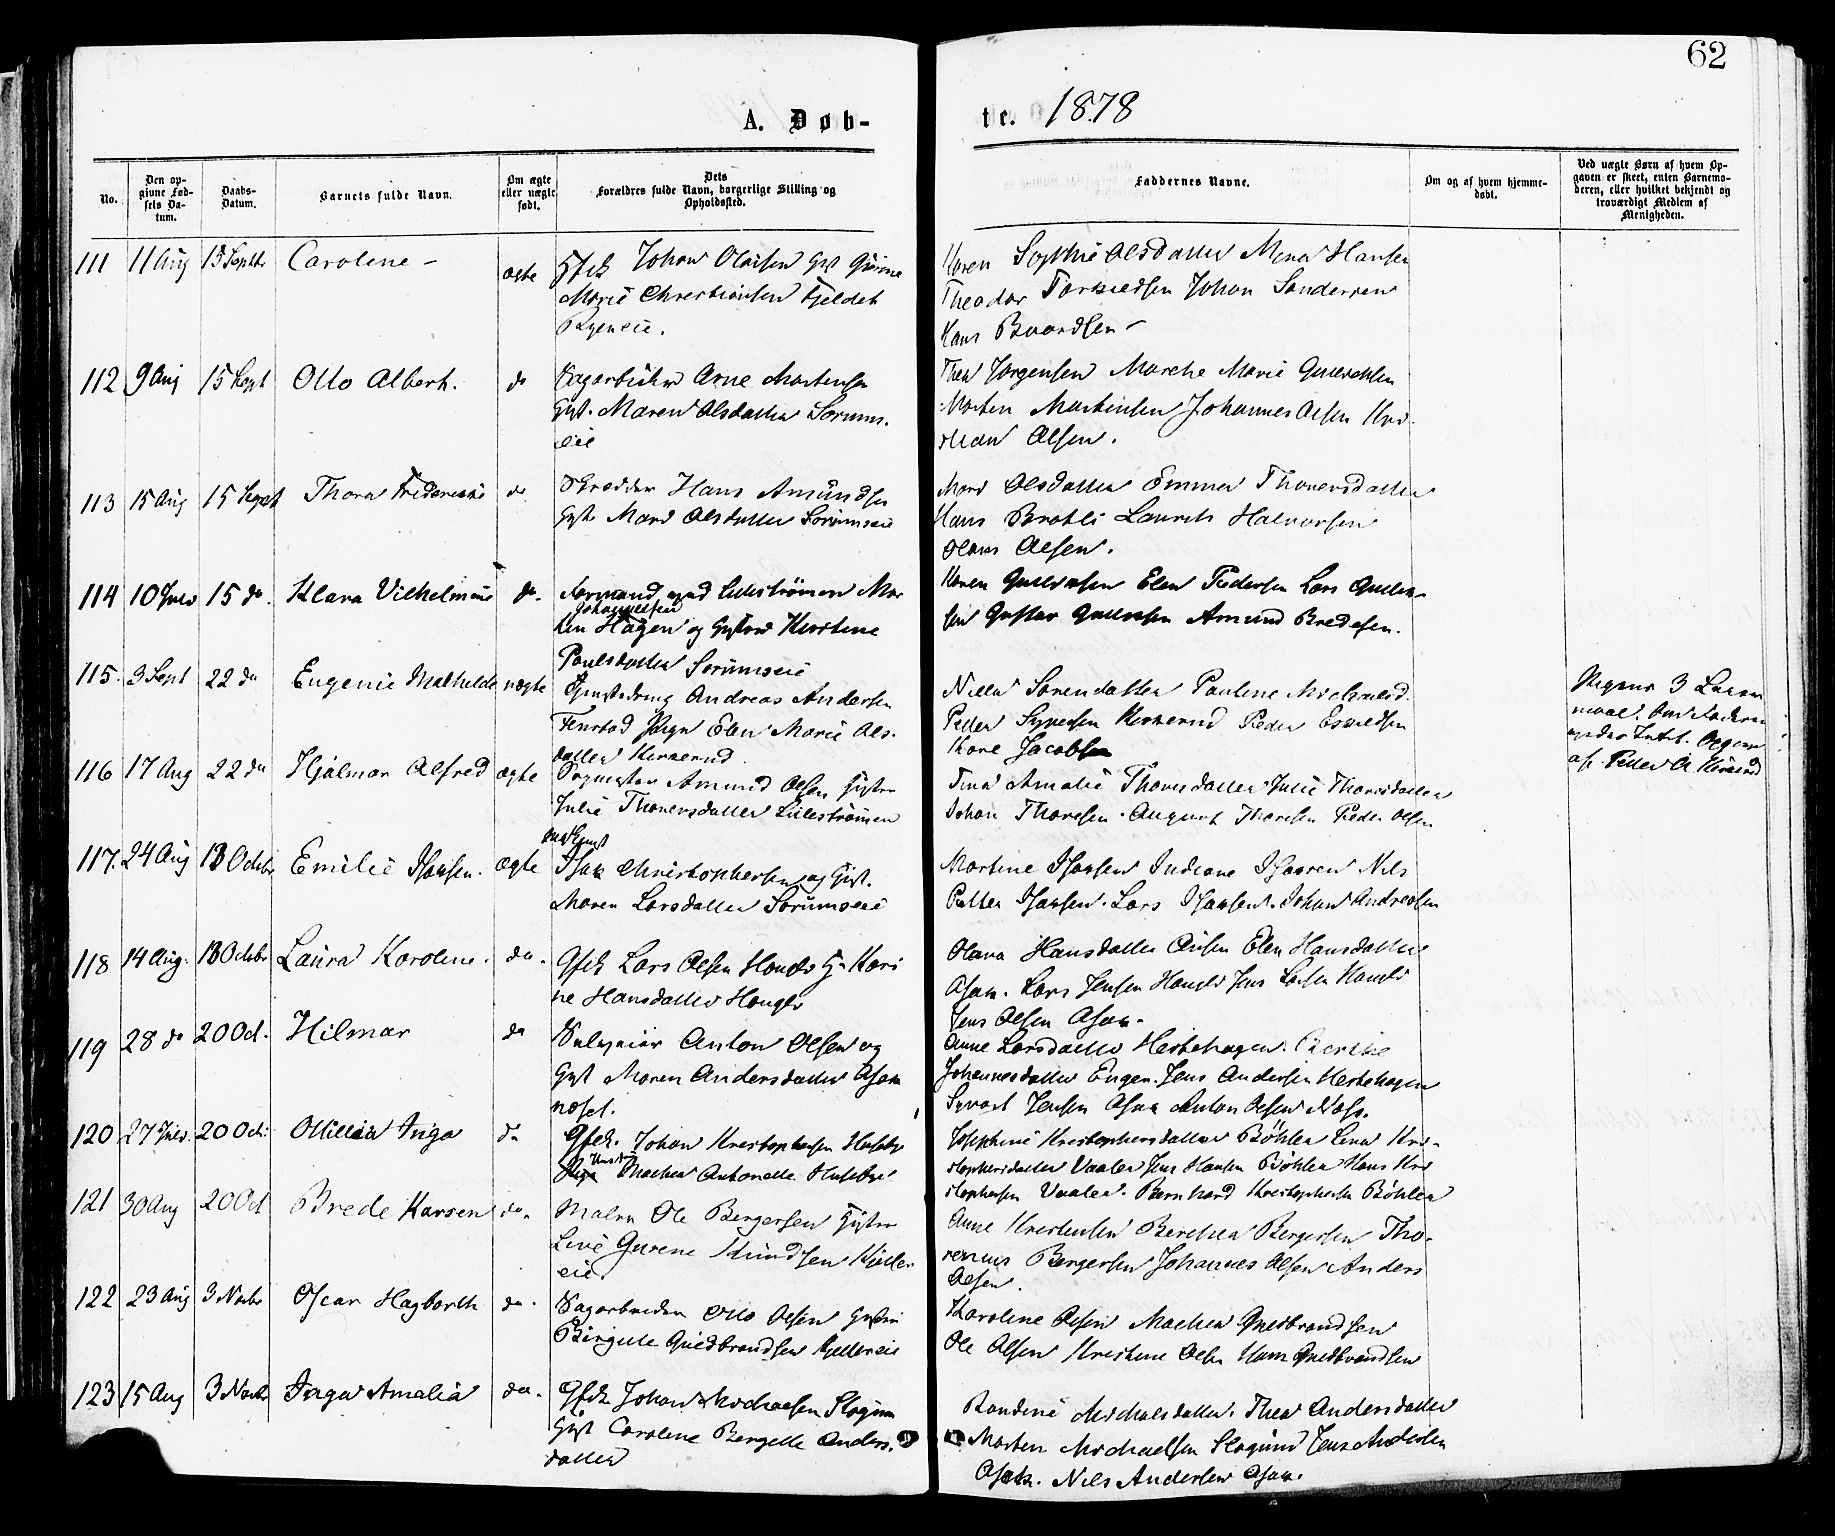 62
A. Døb-
te. 1878
No.
Den op-
givne Fød-
sels Da-
tum.
Daabs-
Datum.
Barnets fulde Navn.
Om ægte
eller uægte
født.
Dets
Forældres fulde Navn, borgerlige Stilling og
Opholdssted.
Faddernes Navne.
Om og af hvem hjemme-
døbt.
Ved uægte Børn af hvem Op-
gaven er skeet, enten Barnemo-
deren, eller hvilket bekjendt og
troværdigt Medlem af
Menigheden.
111 11 Aug 15 Septbr Caroline - ægte Gfdk Johan Olaisen Gst Gurine
Marie Christiansen Fjeldet
Ryeneie.
Karen Sophie Olsdatter Mina Hansen
Theodor Torkildsen Johan Sandersen
Hans Baardsen -
112 9 Aug 15 Sept Otto Albert. do Sagarbeider Arne Martinsen
Gst. Maren Olsdatter Sørums-
eie
Thea Jørgensen Marthe Marie Gulbrandsen
Morten Martinsen Johannes Olsen Kri-
stian Olsen.
113 15 Aug 15 Sept Thora Frederikke do Skrædder Hans Amundsen
Gst Mari Olsdatter Sørumseie
Mari Olsdatter Emma Thoresdatter
Hans Brathli Laurits Halvorsen
Hans Olsen.
114 10 Juli 15 do. Klara Vilhelmine do. Formand ved Lillestrømen Mar
Johannessen
tin Hagen og Gstru Kirstine
Paulsdatter Sørumseie
Karen Gulliksen Elen Pedersen Lars Gullik-
sen Gustav Gulliksen Amund Bredesen.
115. 3 Sept 22 do Eugenie Mathilde uægte Tjenestedreng Andreas Andersen
Fenstad Pige Elen Marie Ols-
datter Kirkerud
Nilla Sørensdatter Pauline Michaelsd.
Petter Syversen Kirkerud Peder Eskildsen
Kare Jacobsen
Pigens 3 Leier-
maal.
af Petter A Kirkerud
116 17 Aug 22 do Hjalmar Alfred ægte Amund Olsen Gstru
Julie Thoresdatter Lillestrømen
Tina Amalie Thoresdatter Julie Thoresdatter
Johan Thoresen. August Thoresen Peder Olsen
117. 24 Aug 13 Octbr Emilie Isaksen. ægte
Isak Christophersen og Gst.
Maren Larsdatter Sørumseie
Martine Isaksen Indiane Isaksen Nils
Petter Isaksen. Lars Isaksen. Johan Andreasen
118 14 Aug. 13 Octbr Laura Karoline. do. Gfdk Lars Olsen Hougli Kari
ne Hansdatter Hougli
Olava Hansdatter Elen Hansdatter
Asak. Lars Jensen Hougli Jens Larsen Hougli
Jens Olsen Asak.
119 28 do 20 Oct. Hilmar do Selveier Anton Olsen og
Gst Maren Andersdatter Asak
noset.
Anne Larsdatter Herbehagen. Berthe
Johannesdatter Engen. Jens Andersen Herbehagen
Syvert Jensen Asak Anton Olsen Næss.
120 27 Juli 20 Oct. Inga do Gfdk. Johan Kristophersen Huseby
Hustru Mathea Antonette Huseby
Josephine Kristophersdatter Bøhler Lina Kri-
stophersdatter Vaaler Jens Hansen Bøhler Hans Kri
stophersen Vaaler. Bernhard Kristophersen Bøhler
121 30 Aug 20 Oct Brede Karsen do. Maler Ole Bergersen Gstru
Live Gurine Knudsen Kjeller
eie.
Anne Kristensen Berthea Bergersen Tho-
renius Bergersen Johannes Olsen Anders
Olsen.
122 23 Aug 3 Novbr Oscar Hagbarth do. Sagarbeider Otto Olsen Gstru
Birgitte Guldbrandsen Kjellereie
Karoline Olsen Mathea Guldbrandsen
Ole Olsen Kristine Olsen Hans Guldbrandsen
123 15 Aug 3 Novbr Inga Amalia do. Gfdk Johan Michaelsen Slogum
Gst Caroline Bergitte Anders-
datter
Randine Michalsdatter. Thea Andersdatter
Morten Michaelsen Slogum Jens Andersen
Asak. Nils Andersen Asak.